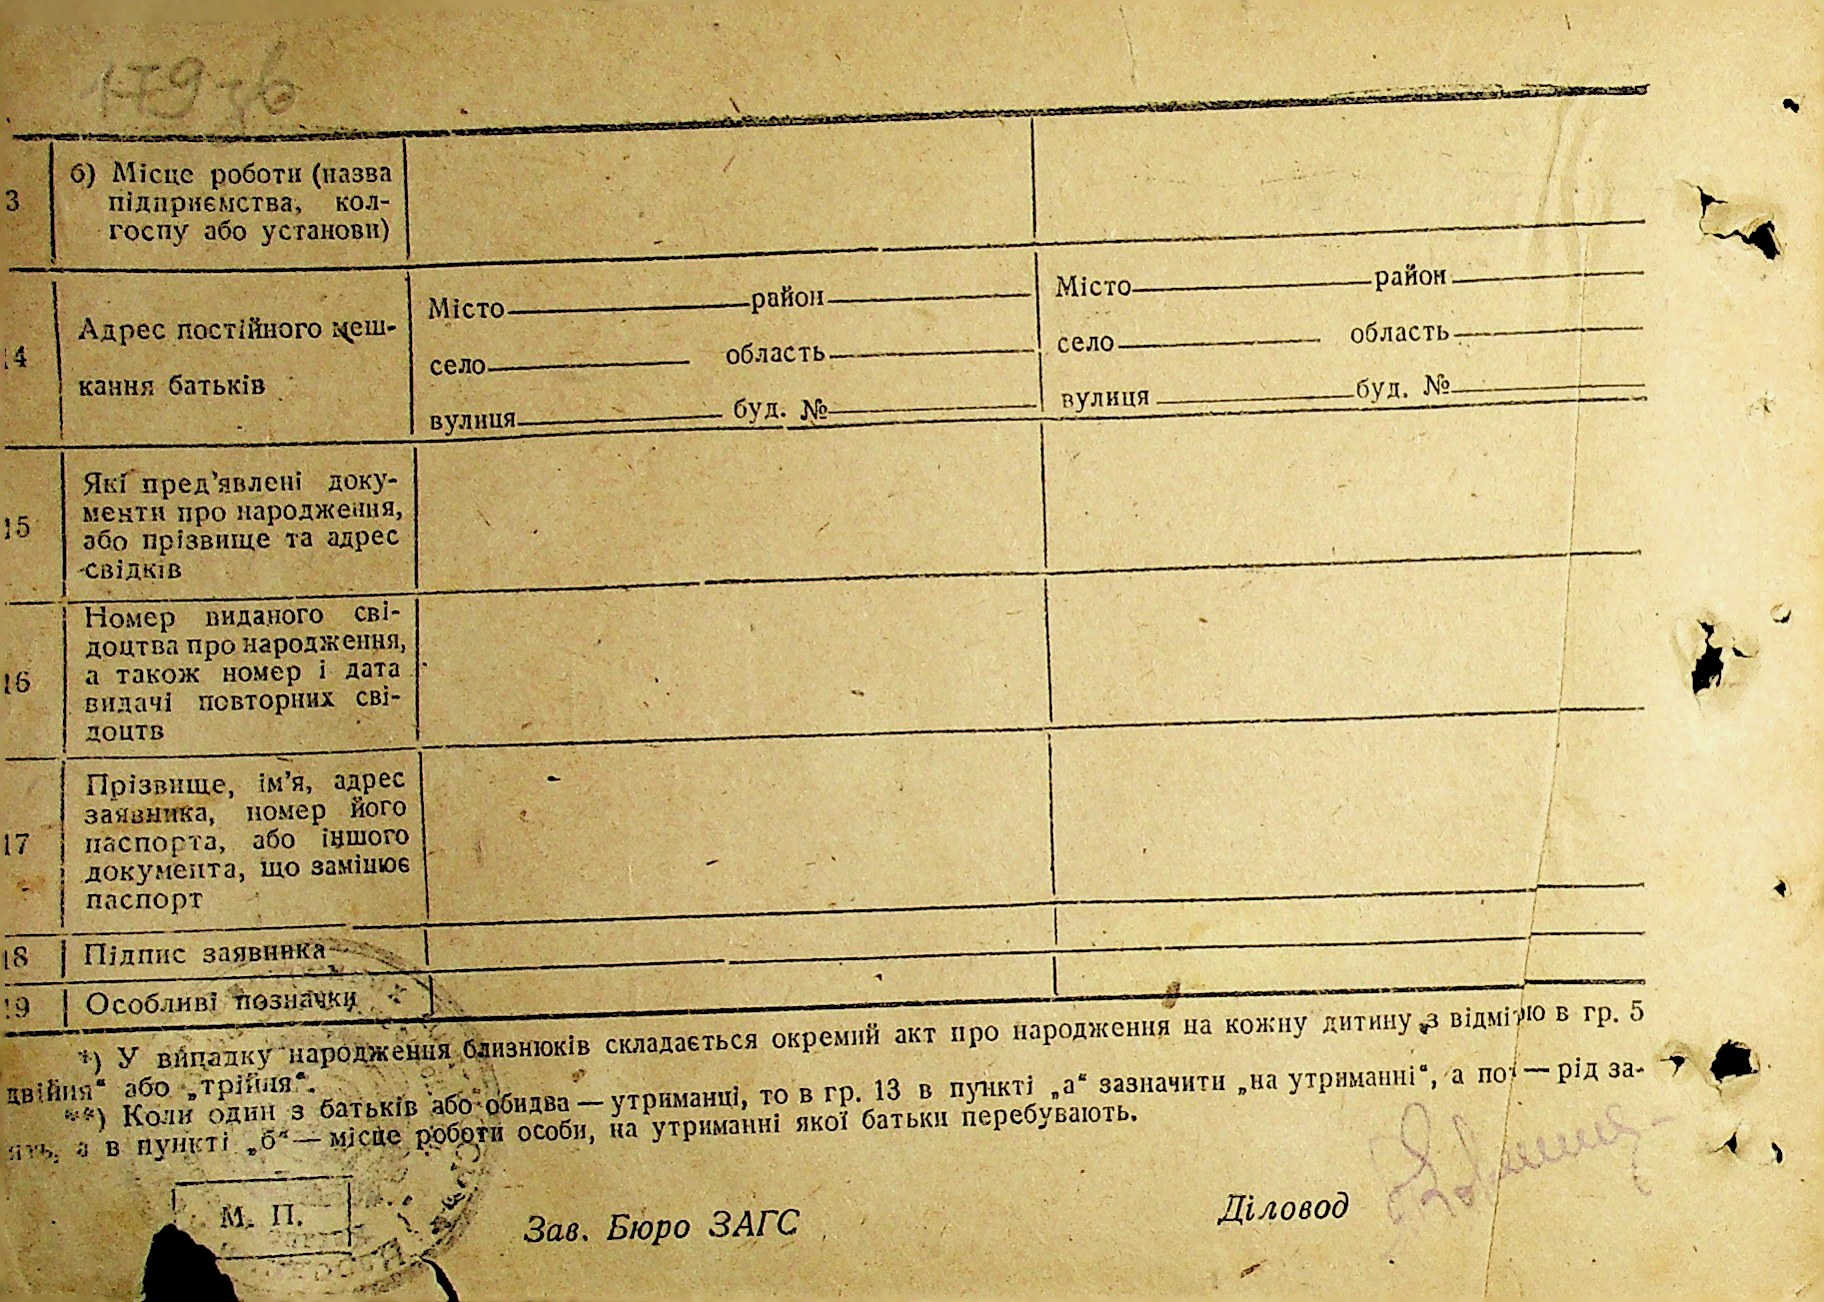 179зв
3 б) Місце роботи (назва
підприємства, кол-
госпу або установи)
14 Адрес постійного меш-
кання батьків
Місто район
село область
вулиця буд. №
Місто район
село область
вулиця буд. №
15 Які пред'явлені доку-
менти про народження,
або прізвище та адрес
свідків
16 Номер виданого сві-
доцтва про народження,
а також номер і дата
видачі повторних сві-
доцтв
17 Прізвище, ім'я, адрес
заявника, номер його
паспорта, або іншого
документа, що замінює
паспорт
18 Підпис заявника
19 Особливі позначки
*) У випадку народження близнюків складається окремий акт про народження на кожну дитину з відміткою в гр. 5
двійня" або „трійня".
**) Коли один з батьків або обидва — утриманці, то в гр. 13 в пункті „а" зазначити „на утриманні", а потім — рід за-
ять, а в пункті „б" — місце роботи особи, на утриманні якої батьки перебувають.
М. П.
Зав. Бюро ЗАГС
Діловод